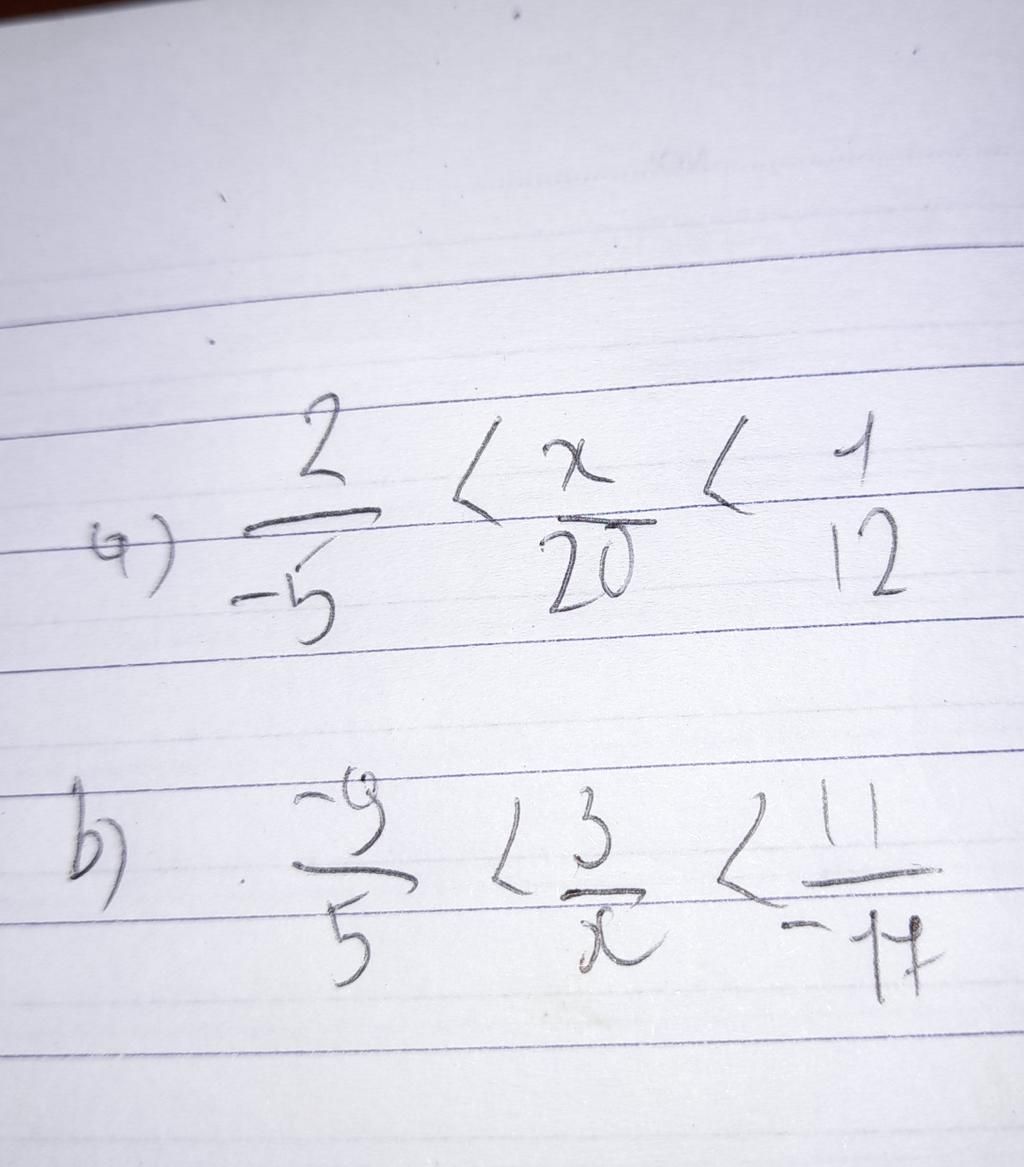 a) 2/-5 < x/20 < 1/12
b) -9/5 < 3/x < 11/-17